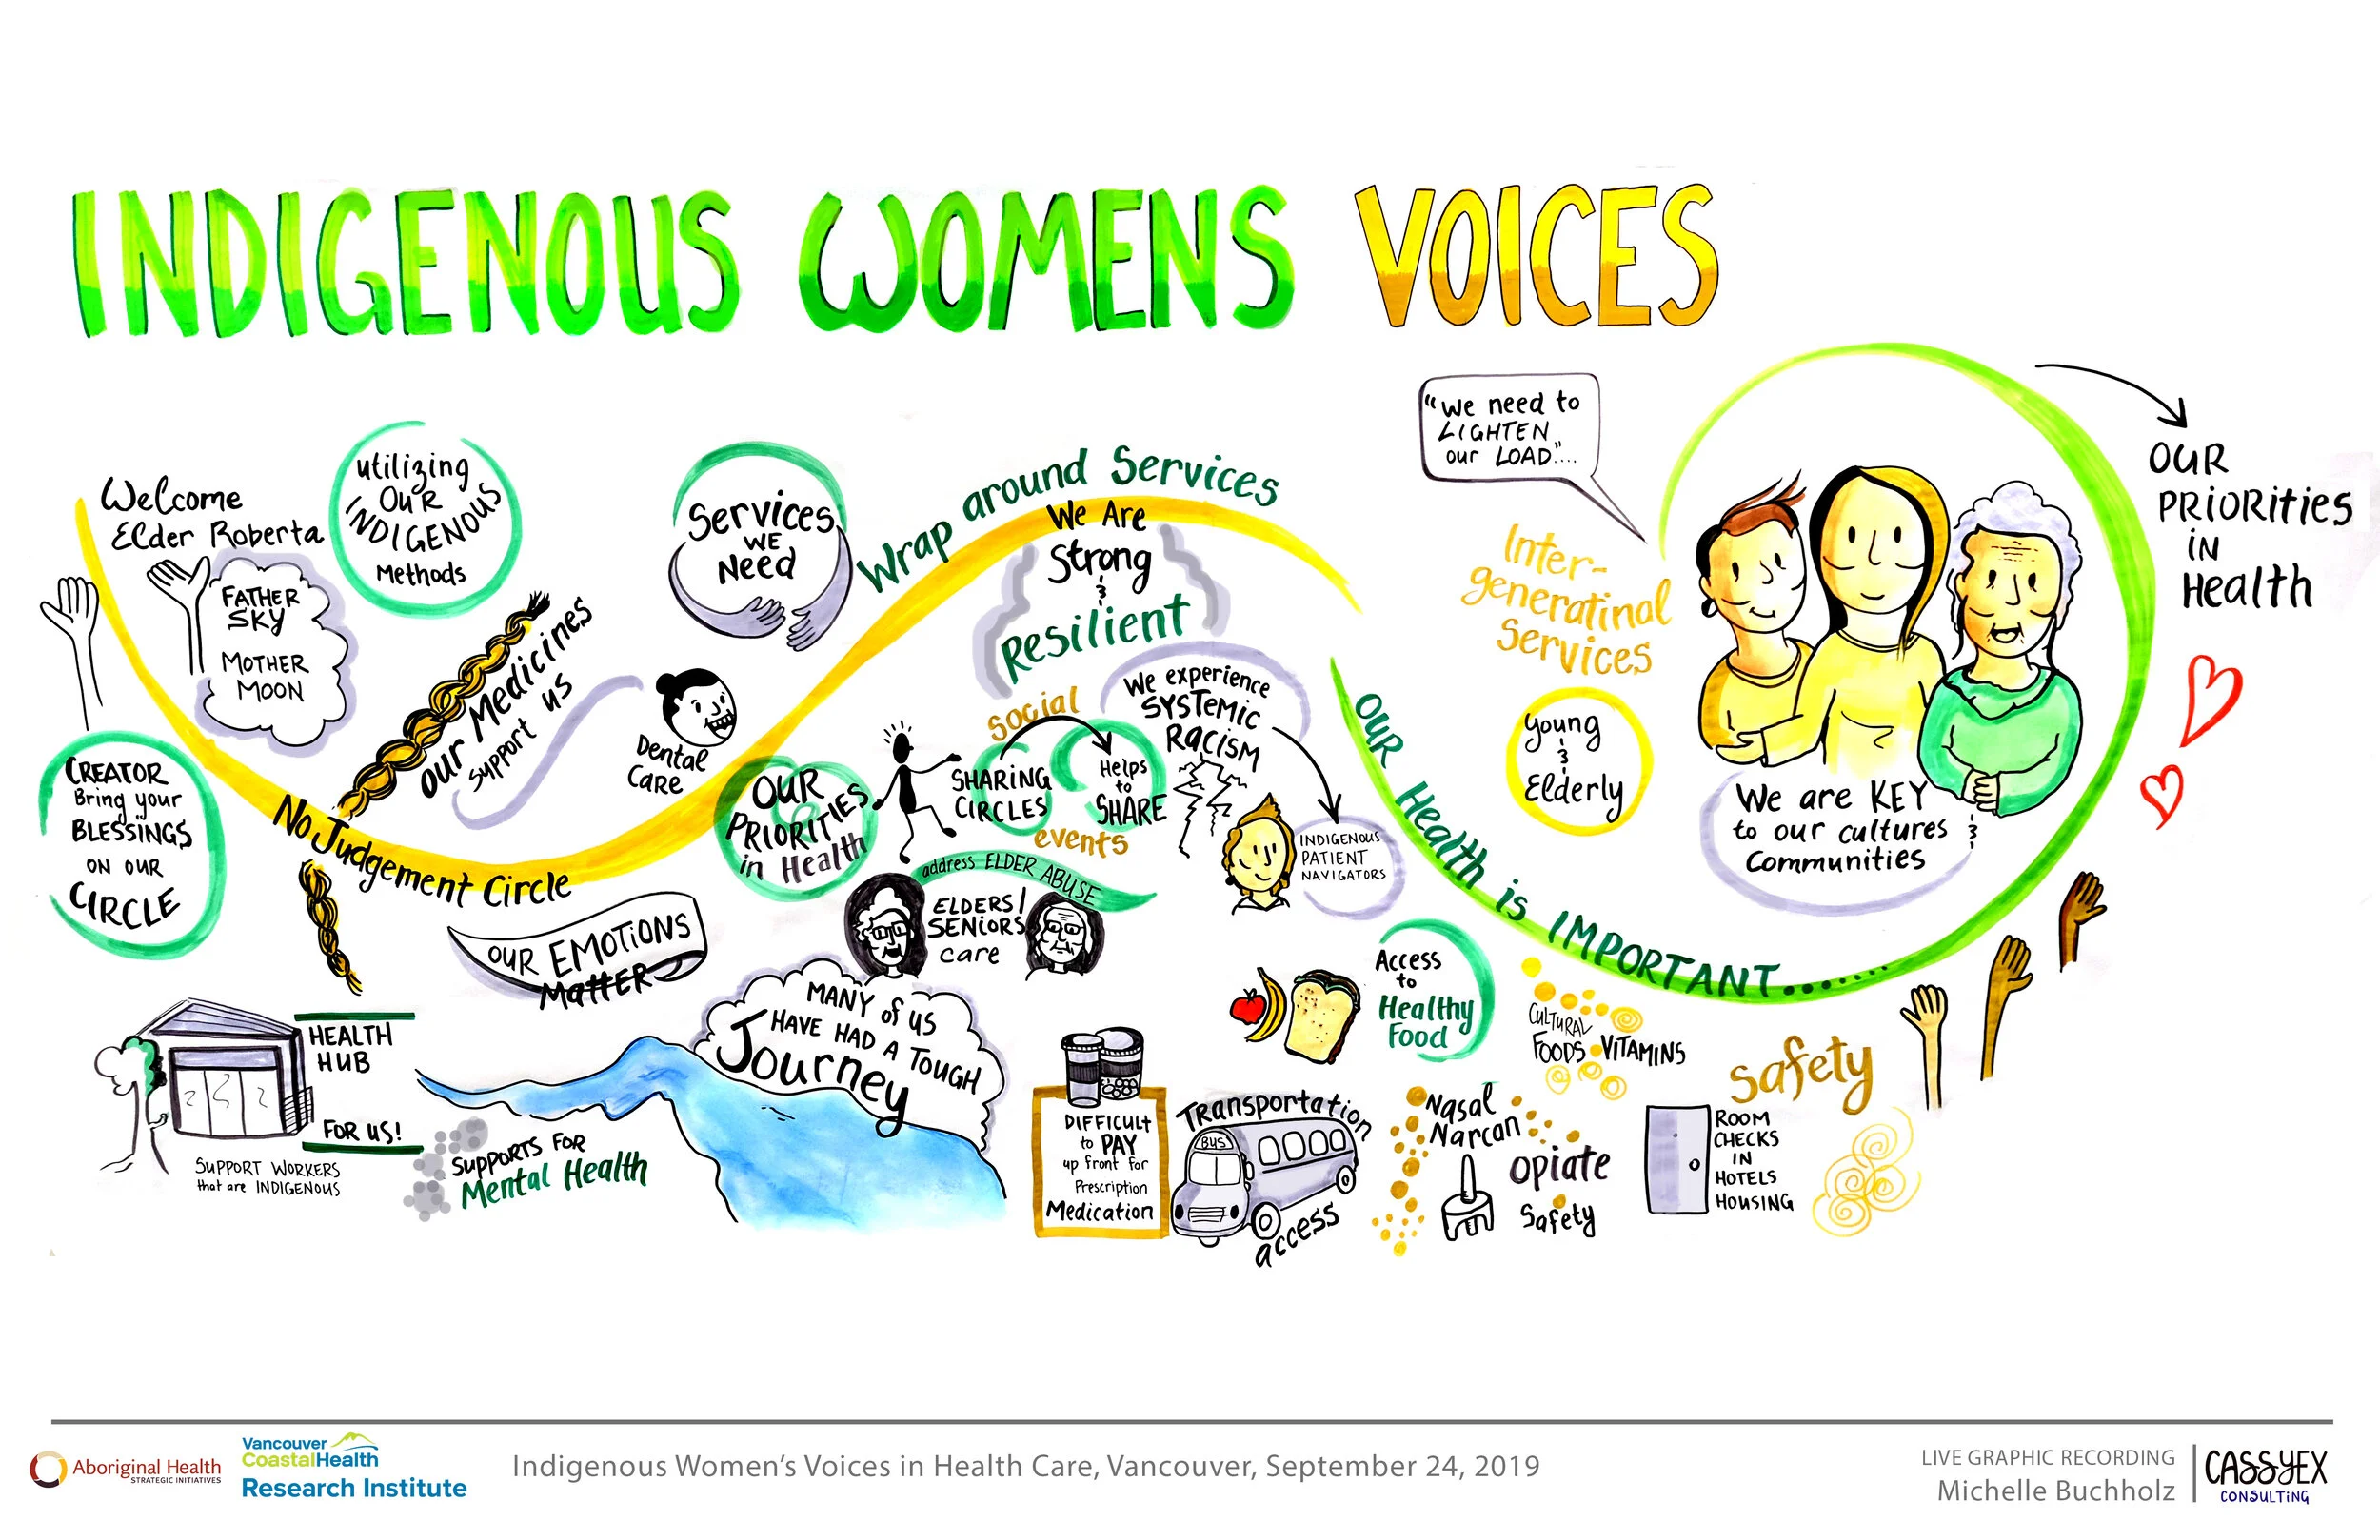 INDIGENOUS WOMENS VOICES
Welcome
Elder Roberta
FATHER
SKY
MOTHER
MOON
utilizing
OUR
INDIGENOUS
Methods
CREATOR
Bring your
BLESSINGS
ON OUR
CIRCLE
No Judgement Circle
our Medicines
support us
Dental
Care
Services
WE
Need
Wrap around Services
We Are
Strong
&
Resilient
OUR
PRIORITIES
in Health
social
SHARING
CIRCLES
Helps
to
SHARE
events
We experience
SYSTEMIC
RACISM
INDIGENOUS
PATIENT
NAVIGATORS
address ELDER ABUSE
ELDERS/
SENIORS
care
OUR EMOTIONS
MATTER
HEALTH
HUB
FOR US!
SUPPORT WORKERS
that are INDIGENOUS
SUPPORTS FOR
Mental Health
MANY of us
HAVE HAD A TOUGH
Journey
DIFFICULT
to PAY
up front for
Prescription
Medication
Transportation
BUS
access
Access
to
Healthy
Food
CULTURAL
FOODS VITAMINS
Nasal
Narcan
opiate
Safety
safety
ROOM
CHECKS
IN
HOTELS
HOUSING
OUR Health is IMPORTANT.......
"We need to
LIGHTEN
our LOAD"....
Inter-
generatinal
Services
young
&
Elderly
We are KEY
to our cultures &
Communities
OUR
PRIORITIES
iN
Health
Aboriginal Health
STRATEGIC INITIATIVES
Vancouver
CoastalHealth
Research Institute
Indigenous Women's Voices in Health Care, Vancouver, September 24, 2019
LIVE GRAPHIC RECORDING
Michelle Buchholz
CASSYEX
CONSULTING